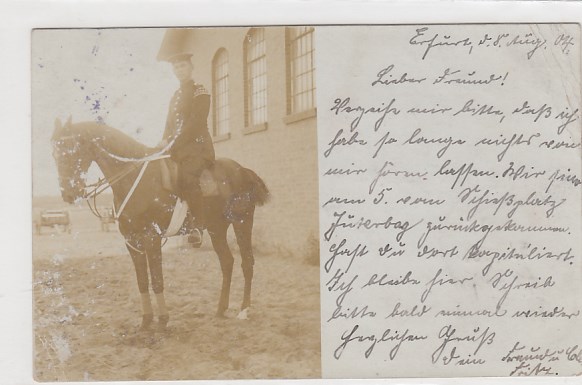 Erfurt, d. 8. Aug. 04.
Lieber Freund!
Verzeihe mir bitte, daß ich
habe so lange nichts von
mir hören lassen. Wir sind
am 5. vom Schießplatz
Jüterbog zurückgekommen.
Hast du dort kapituliert.
Ich bleibe hier. Schreib
bitte bald einmal wieder
Herzlichen Gruß
dein Freund u.
Fritz.